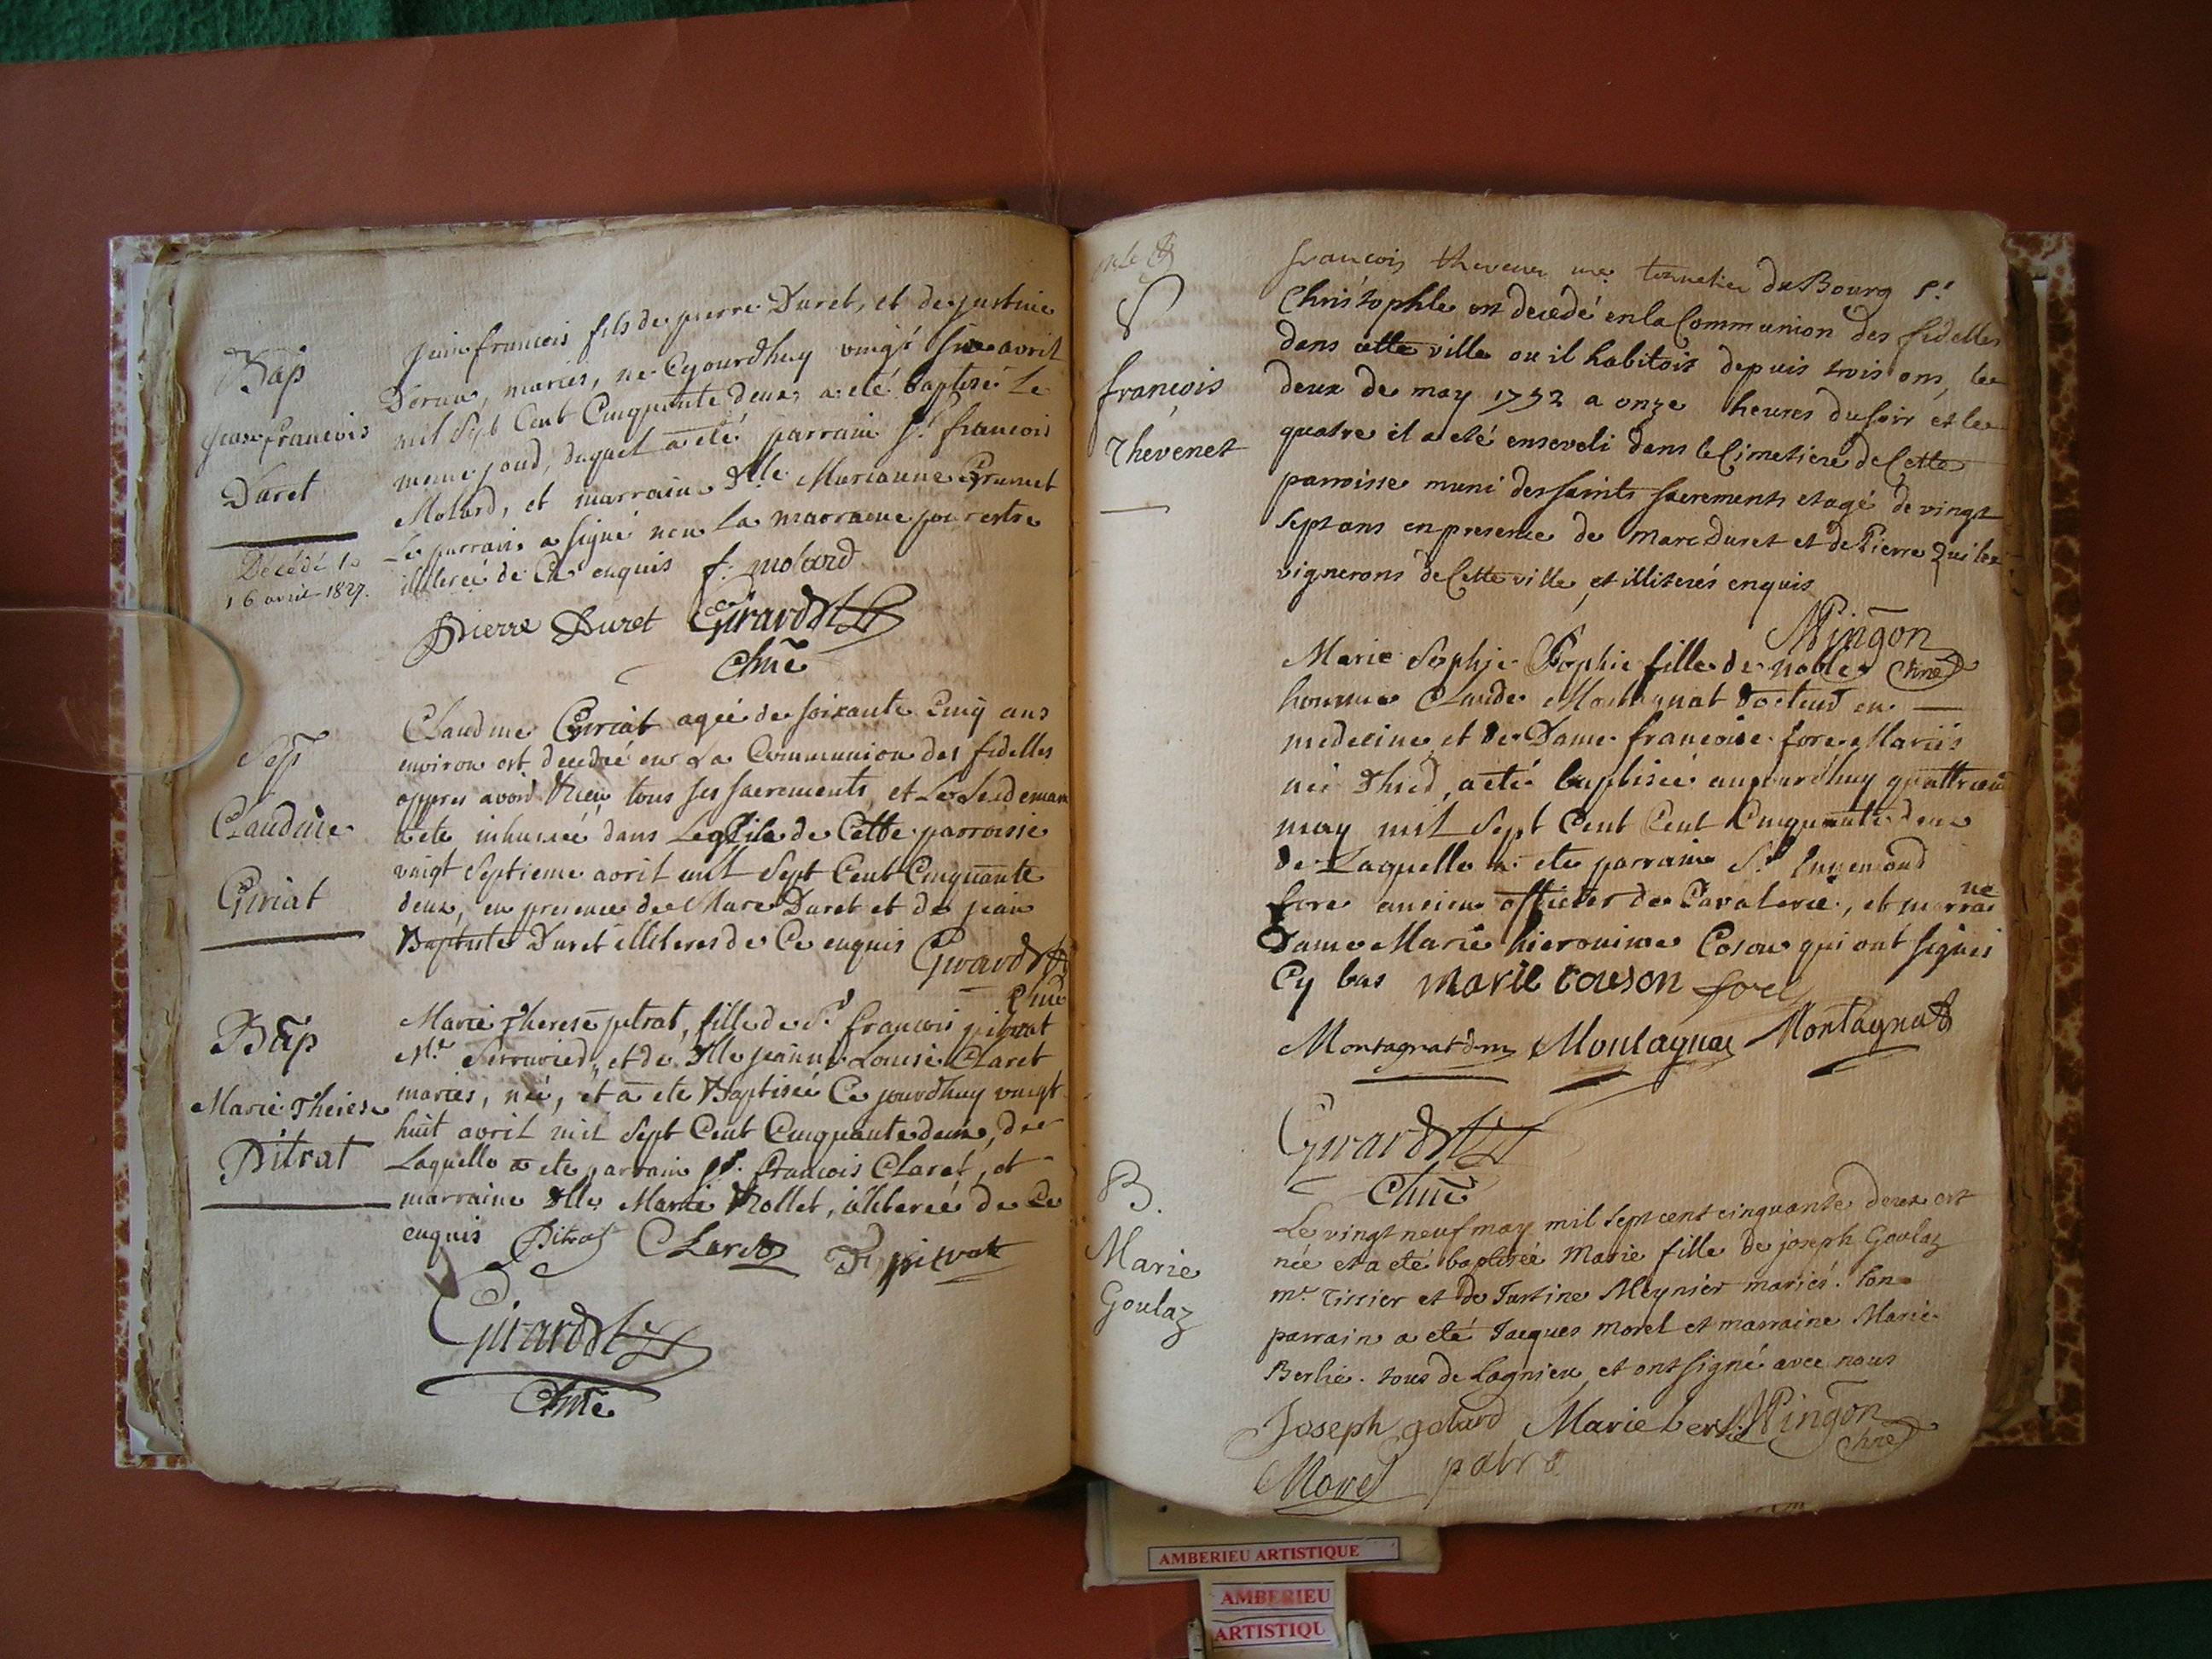 Bap
jean francois
Duret
Décédé le
16 avril 1827.
jean francois fils de pierre Duret, et de justine
mariés, né Cejourdhuy vingt six avril
mil sept Cent Cinquante deux, a eté baptisé Le
meme jour, duquel a eté parrain Sr. francois
Molard, et marraine Dlle Marianne Grumet
Le parrain a signé non La marraine pour estre
illiterée de Ce enquis f. molard
Pierre Duret Girardet
Chne
Sep
Claudine
Giriat
Claudine Giriat agée de soixante Cinq ans
environ est decedée en La Communion des fidelles
appres avoir Receu tous ses sacrements, et Le Lendemain
a ete inhumée dans Leglise de Cette parroisse
vingt septieme avril mil sept Cent Cinquante
deux, en presence de Marc Duret et de jean
Baptiste Duret illiteres de Ce enquis Girardet
Chne
Bap
Marie Therese
Pitrat
Marie Therese pitrat, fille de Sr. francois pitrat
Me. Serrurier, et de Dlle jeanne Louise Claret
mariés, née, et a ete Baptisée Ce jourdhuy vingt
huit avril mil sept Cent Cinquante deux, de
Laquelle a ete parrain Sr. francois Claret, et
marraine Dlle Marie Rollet, illiterée de Ce
enquis Pitrat Claret pitrat
Girardet
Chne
S
françois
Thevenet
françois thevenet du Bourg St.
Christophle est decedé en la Communion des fidelles
dans cette ville ou il habitoit depuis trois ans, le
deux de may 1752 a onze heures du soir et le
quatre il a eté enseveli dans le Cimetiere de Cette
parroisse muni des saints sacrements et agé de vingt
sept ans en presence de Marc Duret et de Pierre
vignerons de Cette ville, et illiterés enquis
Mingon
Chne
Marie Sophie Sophie fille de noble
homme Claude Montagnat docteur en
medecine et de Dame francoise fore Mariés
née Thier, a eté baptisée aujourdhuy quattrieme
may mil Sept Cent Cent Cinquante deux
de Laquelle a ete parrain Sr. Ennemond
fore ancien officier de Cavalerie, et marraine
Dame Marie hieronime Coson qui ont signés
Cy bas marie couson fore
Montagnat dm Montagnat Montagnat
Girardet
Chne
B.
Marie
Goulaz
Le vingt neuf may mil sept cent cinquante deux est
née et a eté baptisée Marie fille de joseph Goulaz
me. Tissier et de Justine Meynier mariés. Son
parrain a eté Jacques Morel et marraine Marie
Berlie. tous de Lagnieu, et ont signé avec nous
Joseph golard Marie berlie Mingon
Chne
Morel
AMBERIEU ARTISTIQUE
AMBERIEU
ARTISTIQU